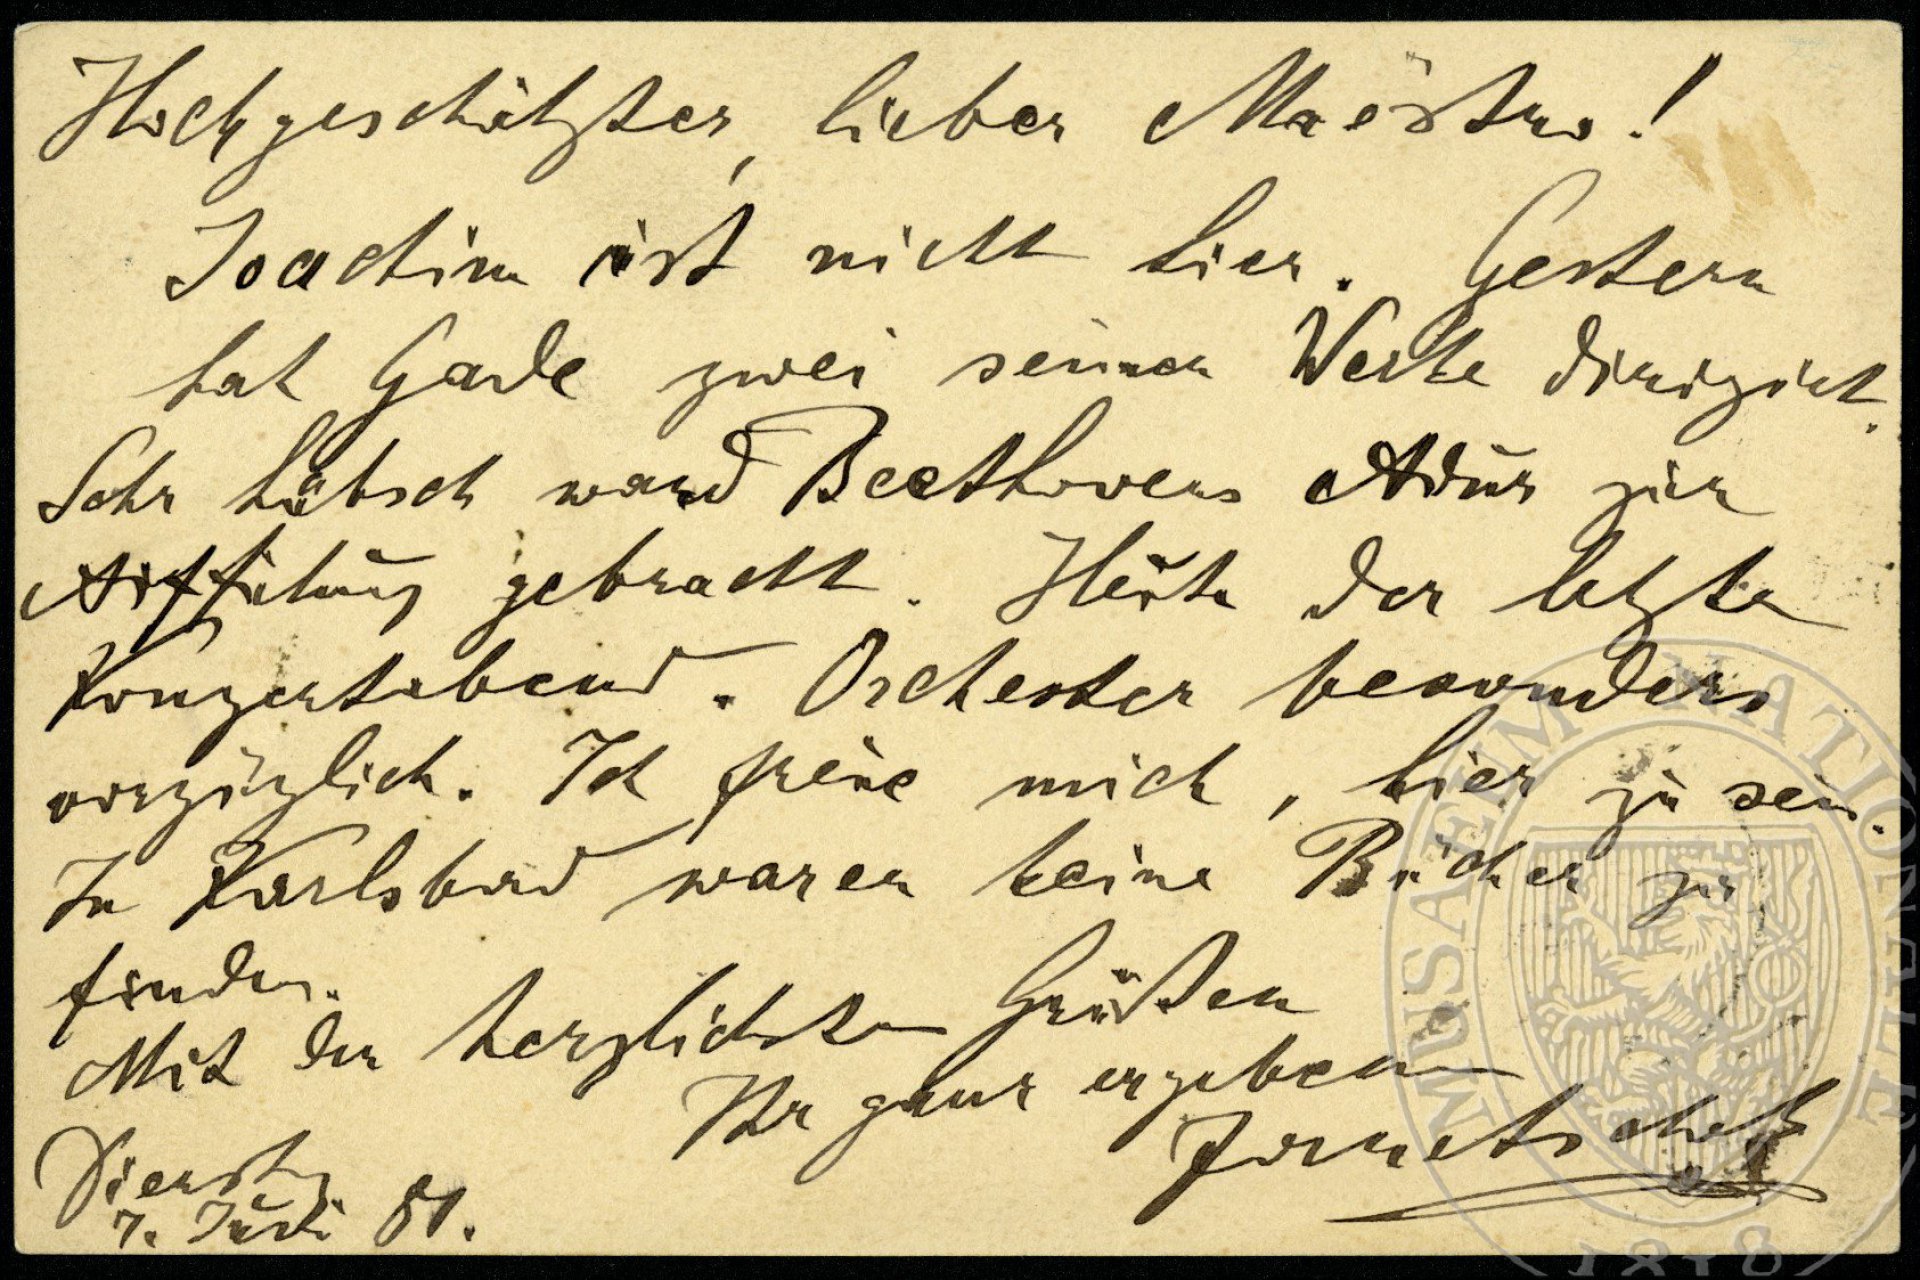 Hochgeschätzter, lieber Maëstro!
Joachim ist nicht hier. Gestern
hat Gade zwei seiner Werke dirigirt.
Sehr hübsch ward Beethovens Adur zur
Aufführung gebracht. Heute der letzte
Konzertabend. Orchester besonders
vorzüglich. Ich freue mich, hier zu sein.
In Karlsbad waren keine Bücher zu
finden.
Mit den herzlichsten Grüßen
Ihr ganz ergeben
Dienstg
7. Juni 81.
MUSAEUM NATIONALE
1818